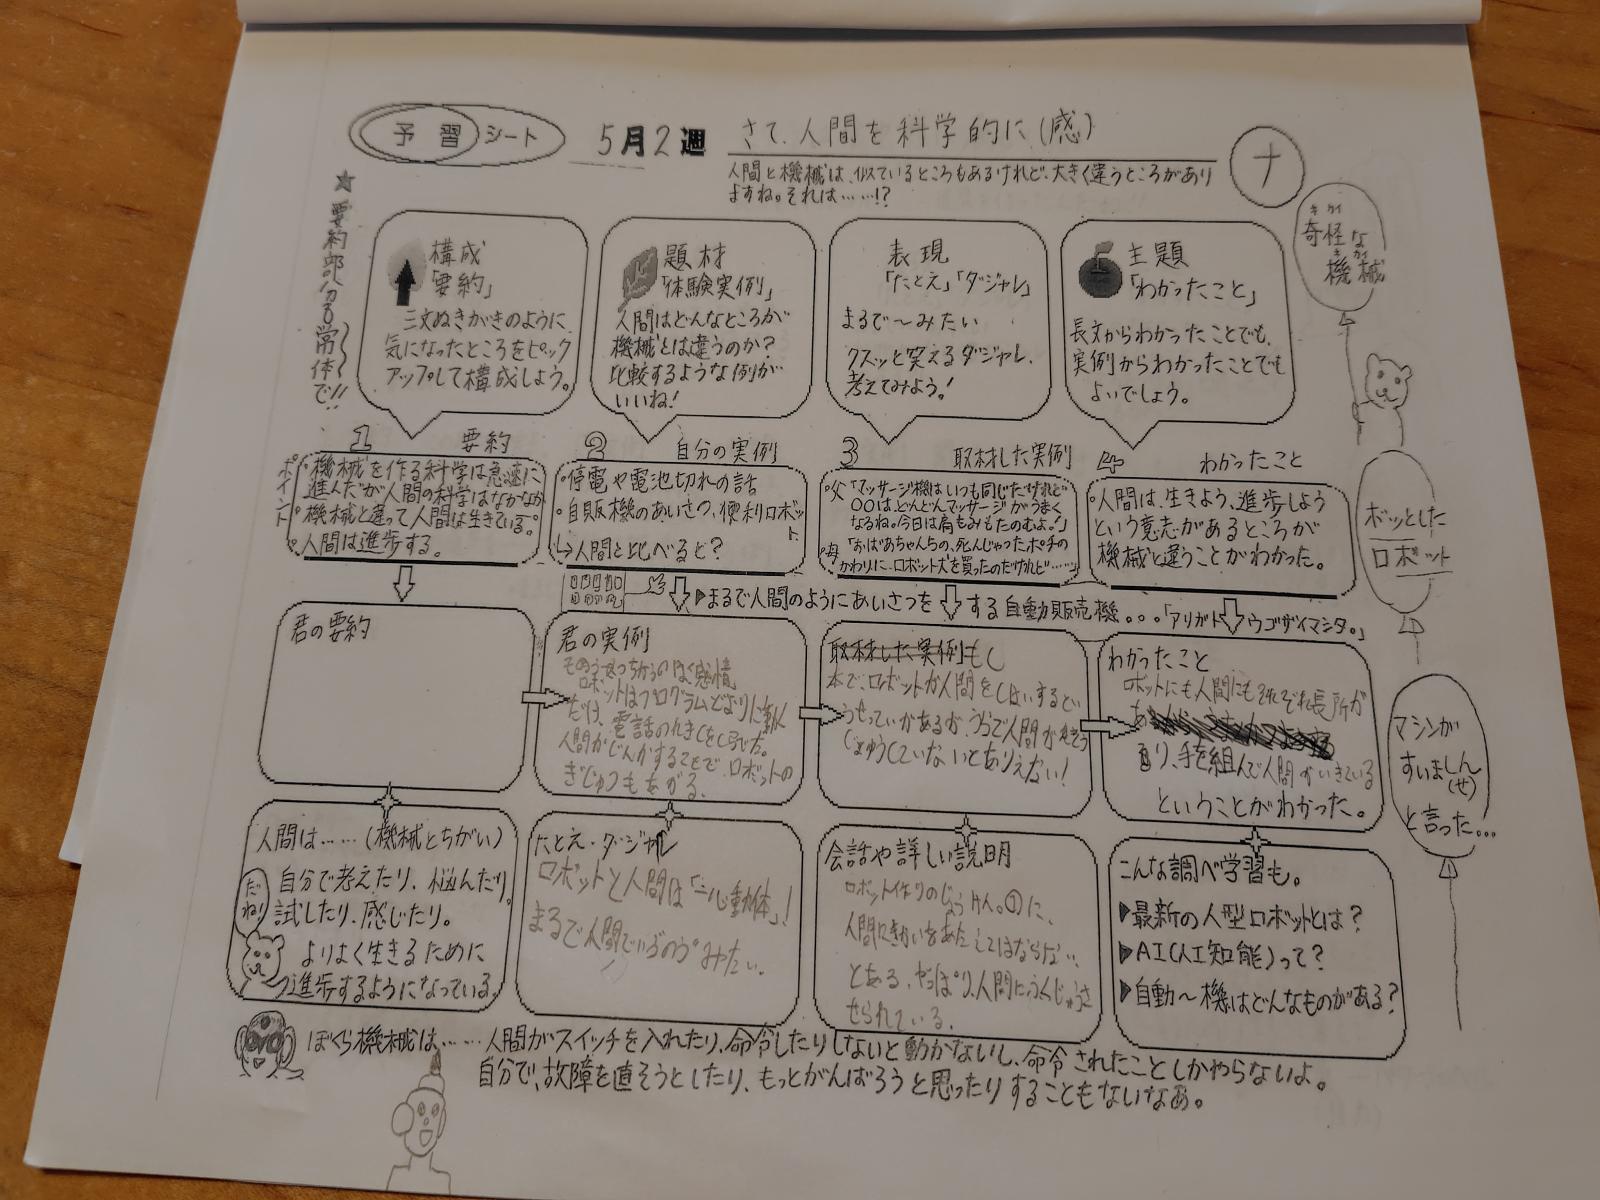 予習シート
5月2週
さて、人間を科学的に(感)
ナ
人間と機械は、似ているところもあるけれど、大きく違うところがあり
ますね。それは……!?
★要約部分も常体で!!
構成
「要約」
三文ぬきがきのように
気になったところをピック
アップして構成しよう。
題材
「体験実例」
人間はどんなところが
機械とは違うのか?
比較するような例が
いいね!
表現
「たとえ」「ダジャレ」
まるで〜みたい
クスッと笑えるダジャレ、
考えてみよう!
主題
「わかったこと」
長文からわかったことでも、
実例からわかったことでも
よいでしょう。
奇怪な
キカイ
機械
キカイ
1 要約
ポイント
機械を作る科学は急速に
進んだが人間の科学はなかなか
機械と違って人間は生きている。
人間は進歩する。
2 自分の実例
停電や電池切れの話
自販機のあいさつ、便利ロボット
↳人間と比べると?
3 取材した実例
父「マッサージ機はいつも同じだけれど
〇〇は、どんどんマッサージがうまく
なるね。今日は肩もみもたのむよ。!」
母「おばあちゃんちの、死んじゃったポチの
かわりに、ロボット犬を買ったのだけれど……」
4 わかったこと
人間は、生きよう、進歩しよう
という意志があるところが
機械と違うことがわかった。
ボッとした
ロボット
▶まるで人間のようにあいさつをする自動販売機。。。「アリガトウゴザイマシタ。」
君の要約
君の実例
感情
ロボットはプログラムどおりに動く
だけ、電話の
人間がしんかすることで、ロボットの
ぎじゅつもあがる。
取材した実例もし
本で、ロボットが人間をしはいするとい
うせっていがあるが、うらで人間が
じゅうしていないとありえない!
わかったこと
ロボットにも人間にもそれぞれ長所が
あり、手を組んで人間がいきている
ということがわかった。
マシンが
すいましん
(せ)
と言った…
人間は……(機械とちがい)
だね!
自分で考えたり、悩んだり、
試したり、感じたり。
よりよく生きるために
進歩するようになっている。
たとえ・ダジャレ
ロボットと人間は「心動体」!
まるで人間でいうのう"みたい。
会話や詳しい説明
ロボット作りのじょうけん。①に、
人間にきがいをあたえてはならない、
とある。やっぱり、人間にふくじゅうさ
せられている。
こんな調べ学習も。
▶最新の人型ロボットとは?
▶AI(人工知能)って?
▶自動〜機はどんなものがある?
ぼくら機械は……人間がスイッチを入れたり、命令したりしないと動かないし、命令されたことしかやらないよ。
自分で、故障を直そうとしたり、もっとがんばろうと思ったりすることもないなあ。